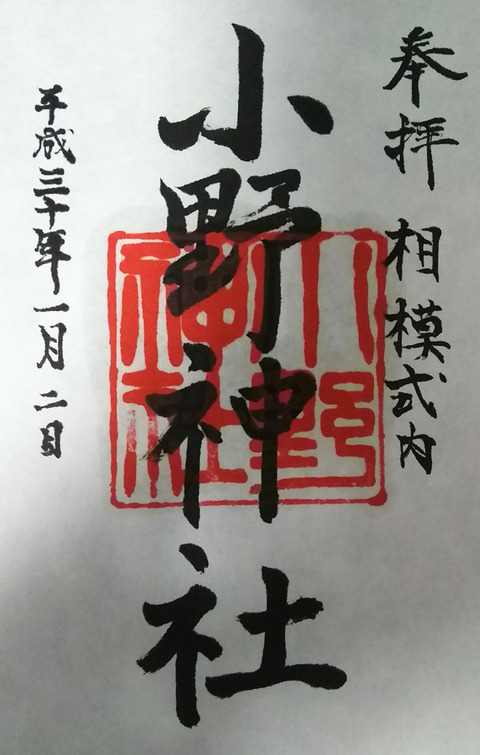 奉拝 相模式内
小野神社
小野神社
平成三十年一月二日